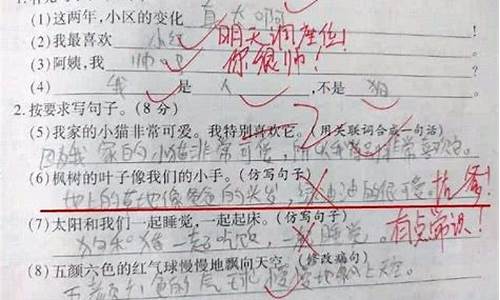 (1)这两年,小区的变化 真大啊
(2)我最喜欢 小红 明天调座位!
(3)阿姨,我 帅吧 你很帅!
(4) 我 是 人 ,不是 狗
2. 按要求写句子。(8分)
(5)我家的小猫非常可爱。我特别喜欢它。(用关联词合成一句话)
因为我家的小猫非常可爱,所以我 非常喜欢它。
(6)枫树的叶子像我们的小手。(仿写句子)
地上的草地像爸爸的头发,绿油油的很可爱。
(7)太阳和我们一起睡觉,一起起床。(仿写句子)
狗和猪一起吃饭,一起睡觉。 有点常识!
(8)五颜六色的红气球慢慢地飘向天空。(修改病句)
五颜六色的气球慢慢地飘上天空。